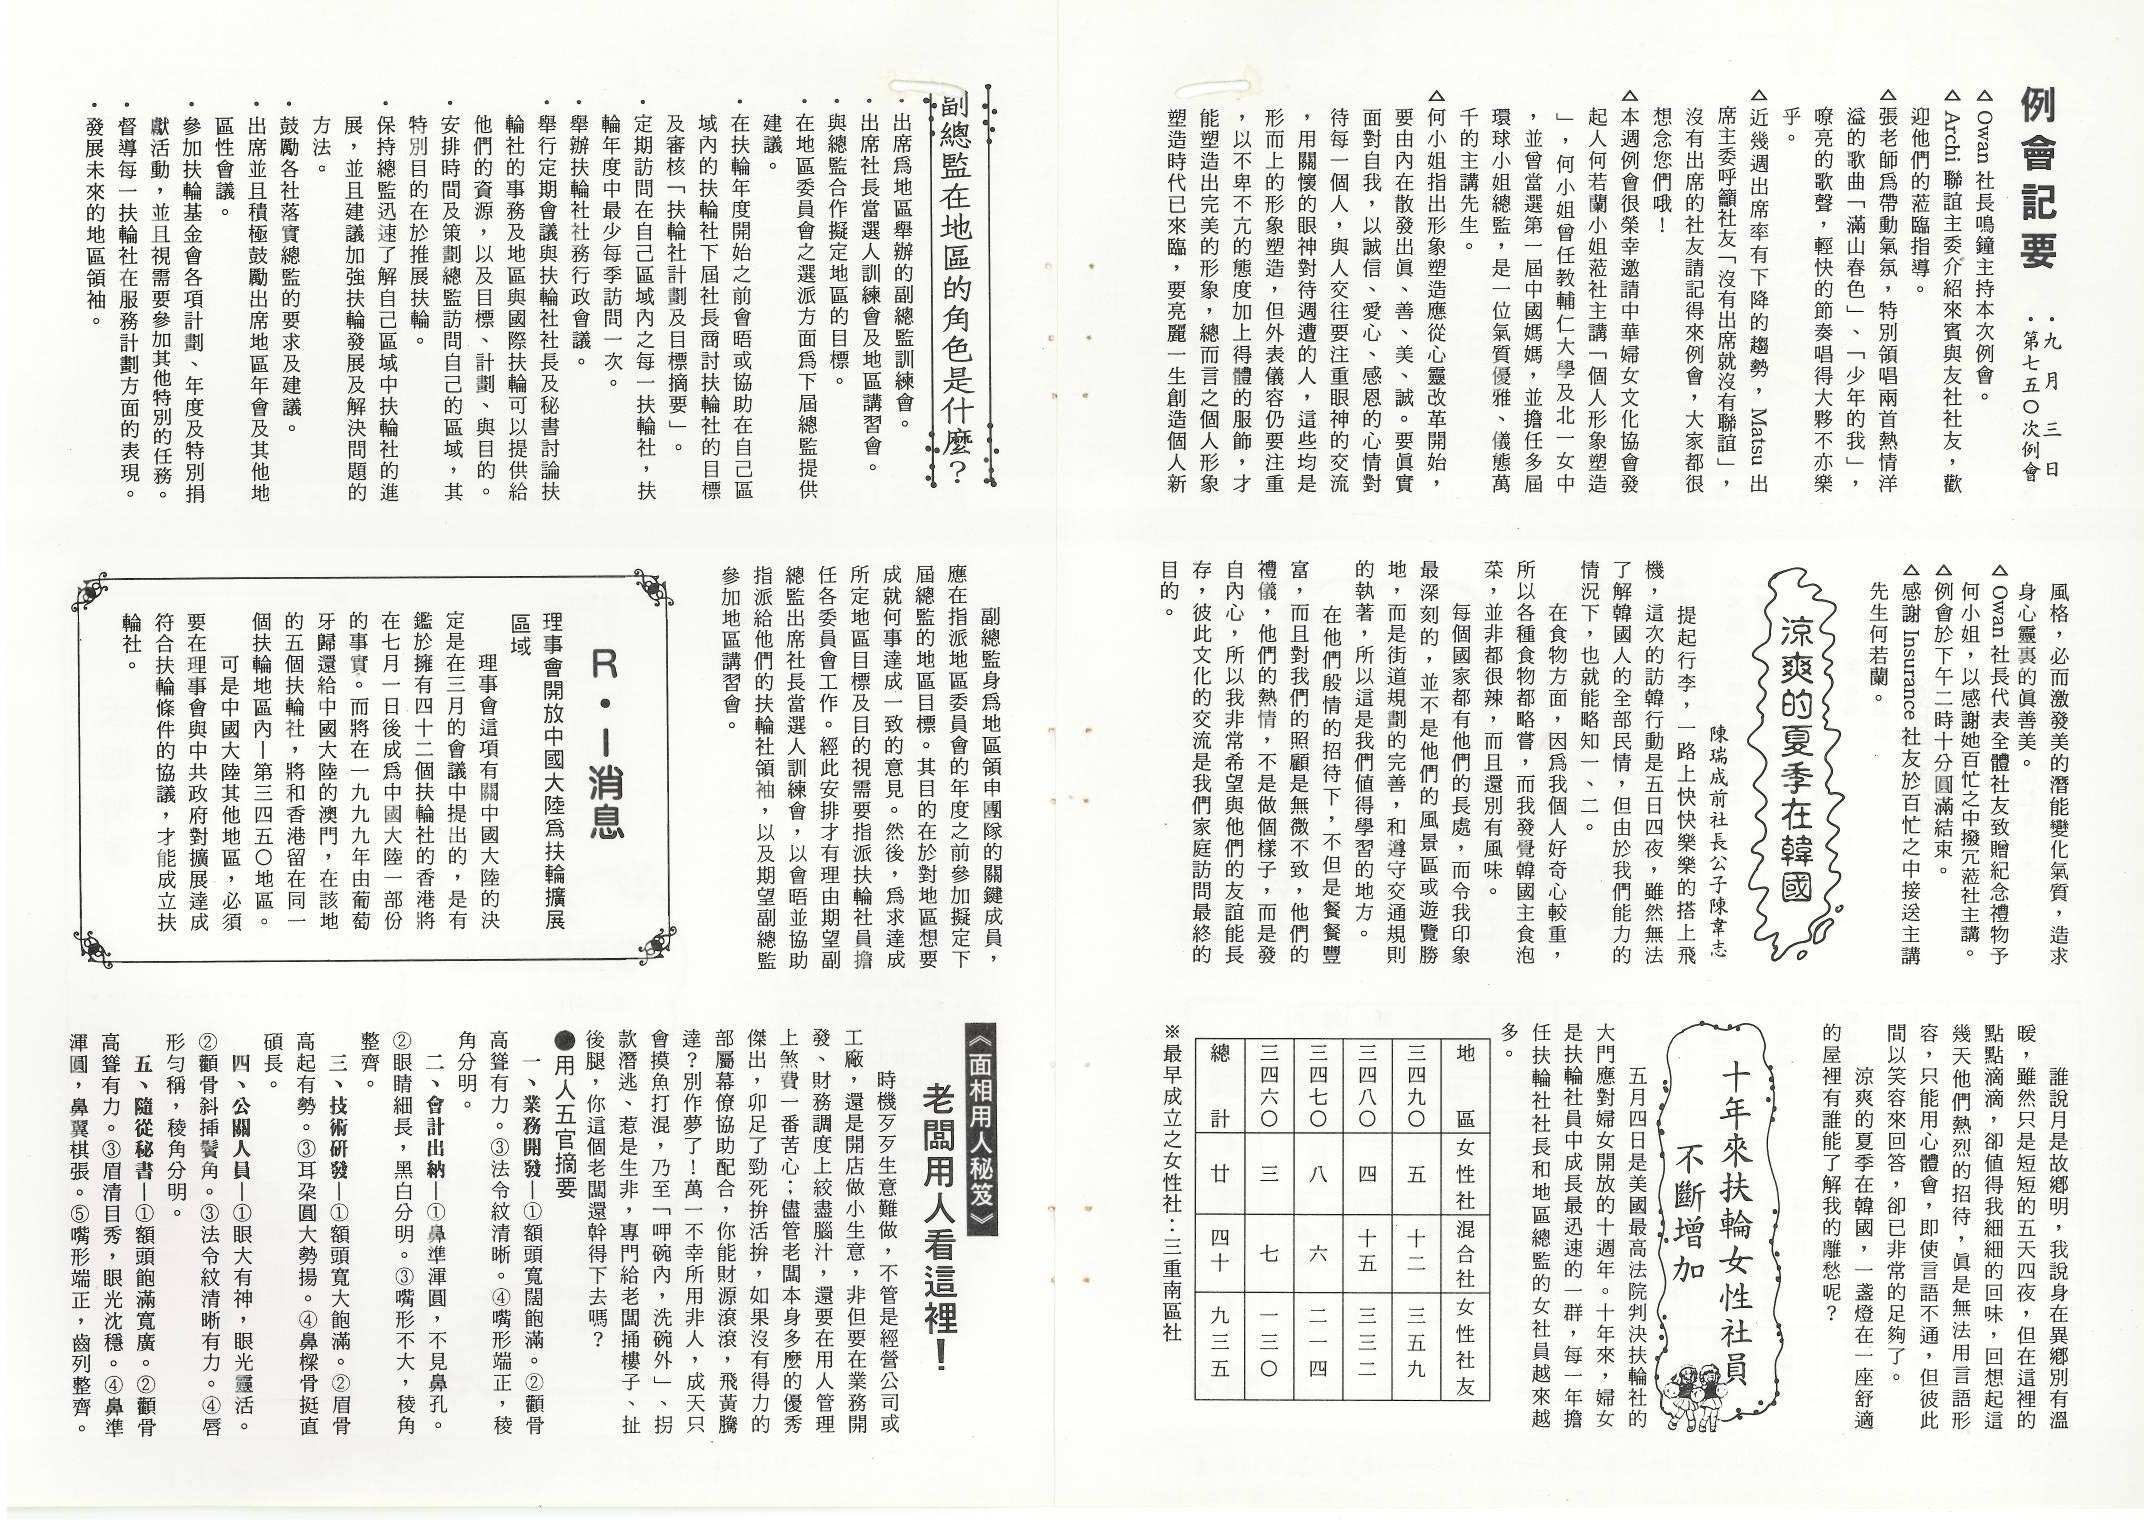 例會記要
．九月三日
．第七五０次例會
△Owan 社長鳴鐘主持本次例會。
△Archi 聯誼主委介紹來賓與友社社友，歡
迎他們的蒞臨指導。
△張老師爲帶動氣氛，特別領唱兩首熱情洋
溢的歌曲「滿山春色」、「少年的我」，
嘹亮的歌聲，輕快的節奏唱得大夥不亦樂
乎。
△近幾週出席率有下降的趨勢，Matsu 出
席主委呼籲社友「沒有出席就沒有聯誼」，
沒有出席的社友請記得來例會，大家都很
想念您們哦！
△本週例會很榮幸邀請中華婦女文化協會發
起人何若蘭小姐蒞社主講「個人形象塑造
」，何小姐曾任教輔仁大學及北一女中
，並曾當選第一屆中國媽媽，並擔任多屆
環球小姐總監，是一位氣質優雅、儀態萬
千的主講先生。
△何小姐指出形象塑造應從心靈改革開始，
要由內在散發出眞、善、美、誠。要眞實
面對自我，以誠信、愛心、感恩的心情對
待每一個人，與人交往要注重眼神的交流
，用關懷的眼神對待週遭的人，這些均是
形而上的形象塑造，但外表儀容仍要注重
，以不卑不亢的態度加上得體的服飾，才
能塑造出完美的形象，總而言之個人形象
塑造時代已來臨，要亮麗一生創造個人新
風格，必而激發美的潛能變化氣質，造求
身心靈裏的眞善美。
△Owan 社長代表全體社友致贈紀念禮物予
何小姐，以感謝她百忙之中撥冗蒞社主講。
△例會於下午二時十分圓滿結束。
△感謝 Insurance 社友於百忙之中接送主講
先生何若蘭。
涼爽的夏季在韓國
陳瑞成前社長公子陳韋志
提起行李，一路上快快樂樂的搭上飛
機，這次的訪韓行動是五日四夜，雖然無法
了解韓國人的全部民情，但由於我們能力的
情況下，也就能略知一、二。
在食物方面，因爲我個人好奇心較重，
所以各種食物都略嘗，而我發覺韓國主食泡
菜，並非都很辣，而且還別有風味。
每個國家都有他們的長處，而令我印象
最深刻的，並不是他們的風景區或遊覽勝
地，而是街道規劃的完善，和遵守交通規則
的執著，所以這是我們值得學習的地方。
在他們殷情的招待下，不但是餐餐豐
富，而且對我們的照顧是無微不致，他們的
禮儀，他們的熱情，不是做個樣子，而是發
自內心，所以我非常希望與他們的友誼能長
存，彼此文化的交流是我們家庭訪問最終的
目的。
誰說月是故鄉明，我說身在異鄉別有溫
暖，雖然只是短短的五天四夜，但在這裡的
點點滴滴，卻值得我細細的回味，回想起這
幾天他們熱烈的招待，眞是無法用言語形
容，只能用心體會，即使言語不通，但彼此
間以笑容來回答，卻已非常的足夠了。
涼爽的夏季在韓國，一盞燈在一座舒適
的屋裡有誰能了解我的離愁呢？
十年來扶輪女性社員
不斷增加
五月四日是美國最高法院判決扶輪社的
大門應對婦女開放的十週年。十年來，婦女
是扶輪社員中成長最迅速的一群，每一年擔
任扶輪社社長和地區總監的女社員越來越
多。
地區 女性社 混合社 女性社友
三四九０ 五 十二 三五九
三四八０ 四 十五 三三二
三四七０ 八 六 二一四
三四六０ 三 七 一三０
總計 廿 四十 九三五
※最早成立之女性社：三重南區社
副總監在地區的角色是什麼？
．出席爲地區舉辦的副總監訓練會。
．出席社長當選人訓練會及地區講習會。
．與總監合作擬定地區的目標。
．在地區委員會之選派方面爲下屆總監提供
建議。
．在扶輪年度開始之前會晤或協助在自己區
域內的扶輪社下屆社長商討扶輪社的目標
及審核「扶輪社計劃及目標摘要」。
．定期訪問在自己區域內之每一扶輪社，扶
輪年度中最少每季訪問一次。
．舉辦扶輪社社務行政會議。
．舉行定期會議與扶輪社社長及秘書討論扶
輪社的事務及地區與國際扶輪可以提供給
他們的資源，以及目標、計劃、與目的。
．安排時間及策劃總監訪問自己的區域，其
特別目的在於推展扶輪。
．保持總監迅速了解自己區域中扶輪社的進
展，並且建議加強扶輪發展及解決問題的
方法。
．鼓勵各社落實總監的要求及建議。
．出席並且積極鼓勵出席地區年會及其他地
區性會議。
．參加扶輪基金會各項計劃、年度及特別捐
獻活動，並且視需要參加其他特別的任務。
．督導每一扶輪社在服務計劃方面的表現。
．發展未來的地區領袖。
副總監身爲地區領申團隊的關鍵成員，
應在指派地區委員會的年度之前參加擬定下
屆總監的地區目標。其目的在於對地區想要
成就何事達成一致的意見。然後，爲求達成
所定地區目標及目的視需要指派扶輪社員擔
任各委員會工作。經此安排才有理由期望副
總監出席社長當選人訓練會，以會晤並協助
指派給他們的扶輪社領袖，以及期望副總監
參加地區講習會。
R．I消息
理事會開放中國大陸爲扶輪擴展
區域
理事會這項有關中國大陸的決
定是在三月的會議中提出的，是有
鑑於擁有四十二個扶輪社的香港將
在七月一日後成爲中國大陸一部份
的事實。而將在一九九九年由葡萄
牙歸還給中國大陸的澳門，在該地
的五個扶輪社，將和香港留在同一
個扶輪地區內—第三四五０地區。
可是中國大陸其他地區，必須
要在理事會與中共政府對擴展達成
符合扶輪條件的協議，才能成立扶
輪社。
《面相用人秘笈》
老闆用人看這裡！
時機歹歹生意難做，不管是經營公司或
工廠，還是開店做小生意，非但要在業務開
發、財務調度上絞盡腦汁，還要在用人管理
上煞費一番苦心；儘管老闆本身多麼的優秀
傑出，卯足了勁死拚活拚，如果沒有得力的
部屬幕僚協助配合，你能財源滾滾，飛黃騰
達？別作夢了！萬一不幸所用非人，成天只
會摸魚打混，乃至「呷碗內，洗碗外」、拐
款潛逃、惹是生非，專門給老闆捅樓子、扯
後腿，你這個老闆還幹得下去嗎？
●用人五官摘要
一、業務開發—①額頭寬闊飽滿。②顴骨
高聳有力。③法令紋清晰。④嘴形端正，稜
角分明。
二、會計出納—①鼻準渾圓，不見鼻孔。
②眼睛細長，黑白分明。③嘴形不大，稜角
整齊。
三、技術研發—①額頭寬大飽滿。②眉骨
高起有勢。③耳朶圓大勢揚。④鼻樑骨挺直
碩長。
四、公關人員—①眼大有神，眼光靈活。
②顴骨斜插鬢角。③法令紋清晰有力。④唇
形勻稱，稜角分明。
五、隨從秘書—①額頭飽滿寬廣。②顴骨
高聳有力。③眉清目秀，眼光沈穩。④鼻準
渾圓，鼻翼棋張。⑤嘴形端正，齒列整齊。